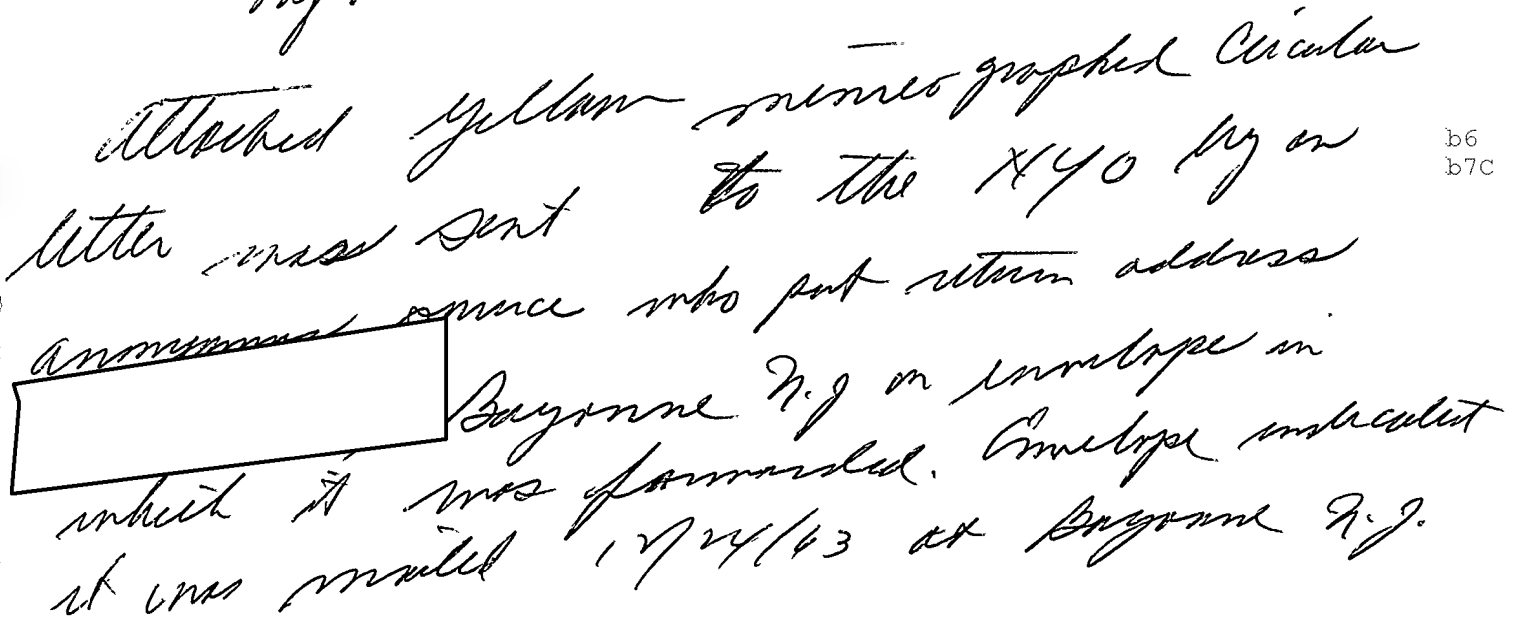 Attached yellow mimeographed circular
letter was sent to the NYO by an
b6
b7C
anonymous source who put return address
Bayonne N.J on envelope in
which it was forwarded. Envelope indicates
it was mailed 12/24/63 at Bayonne N.J.